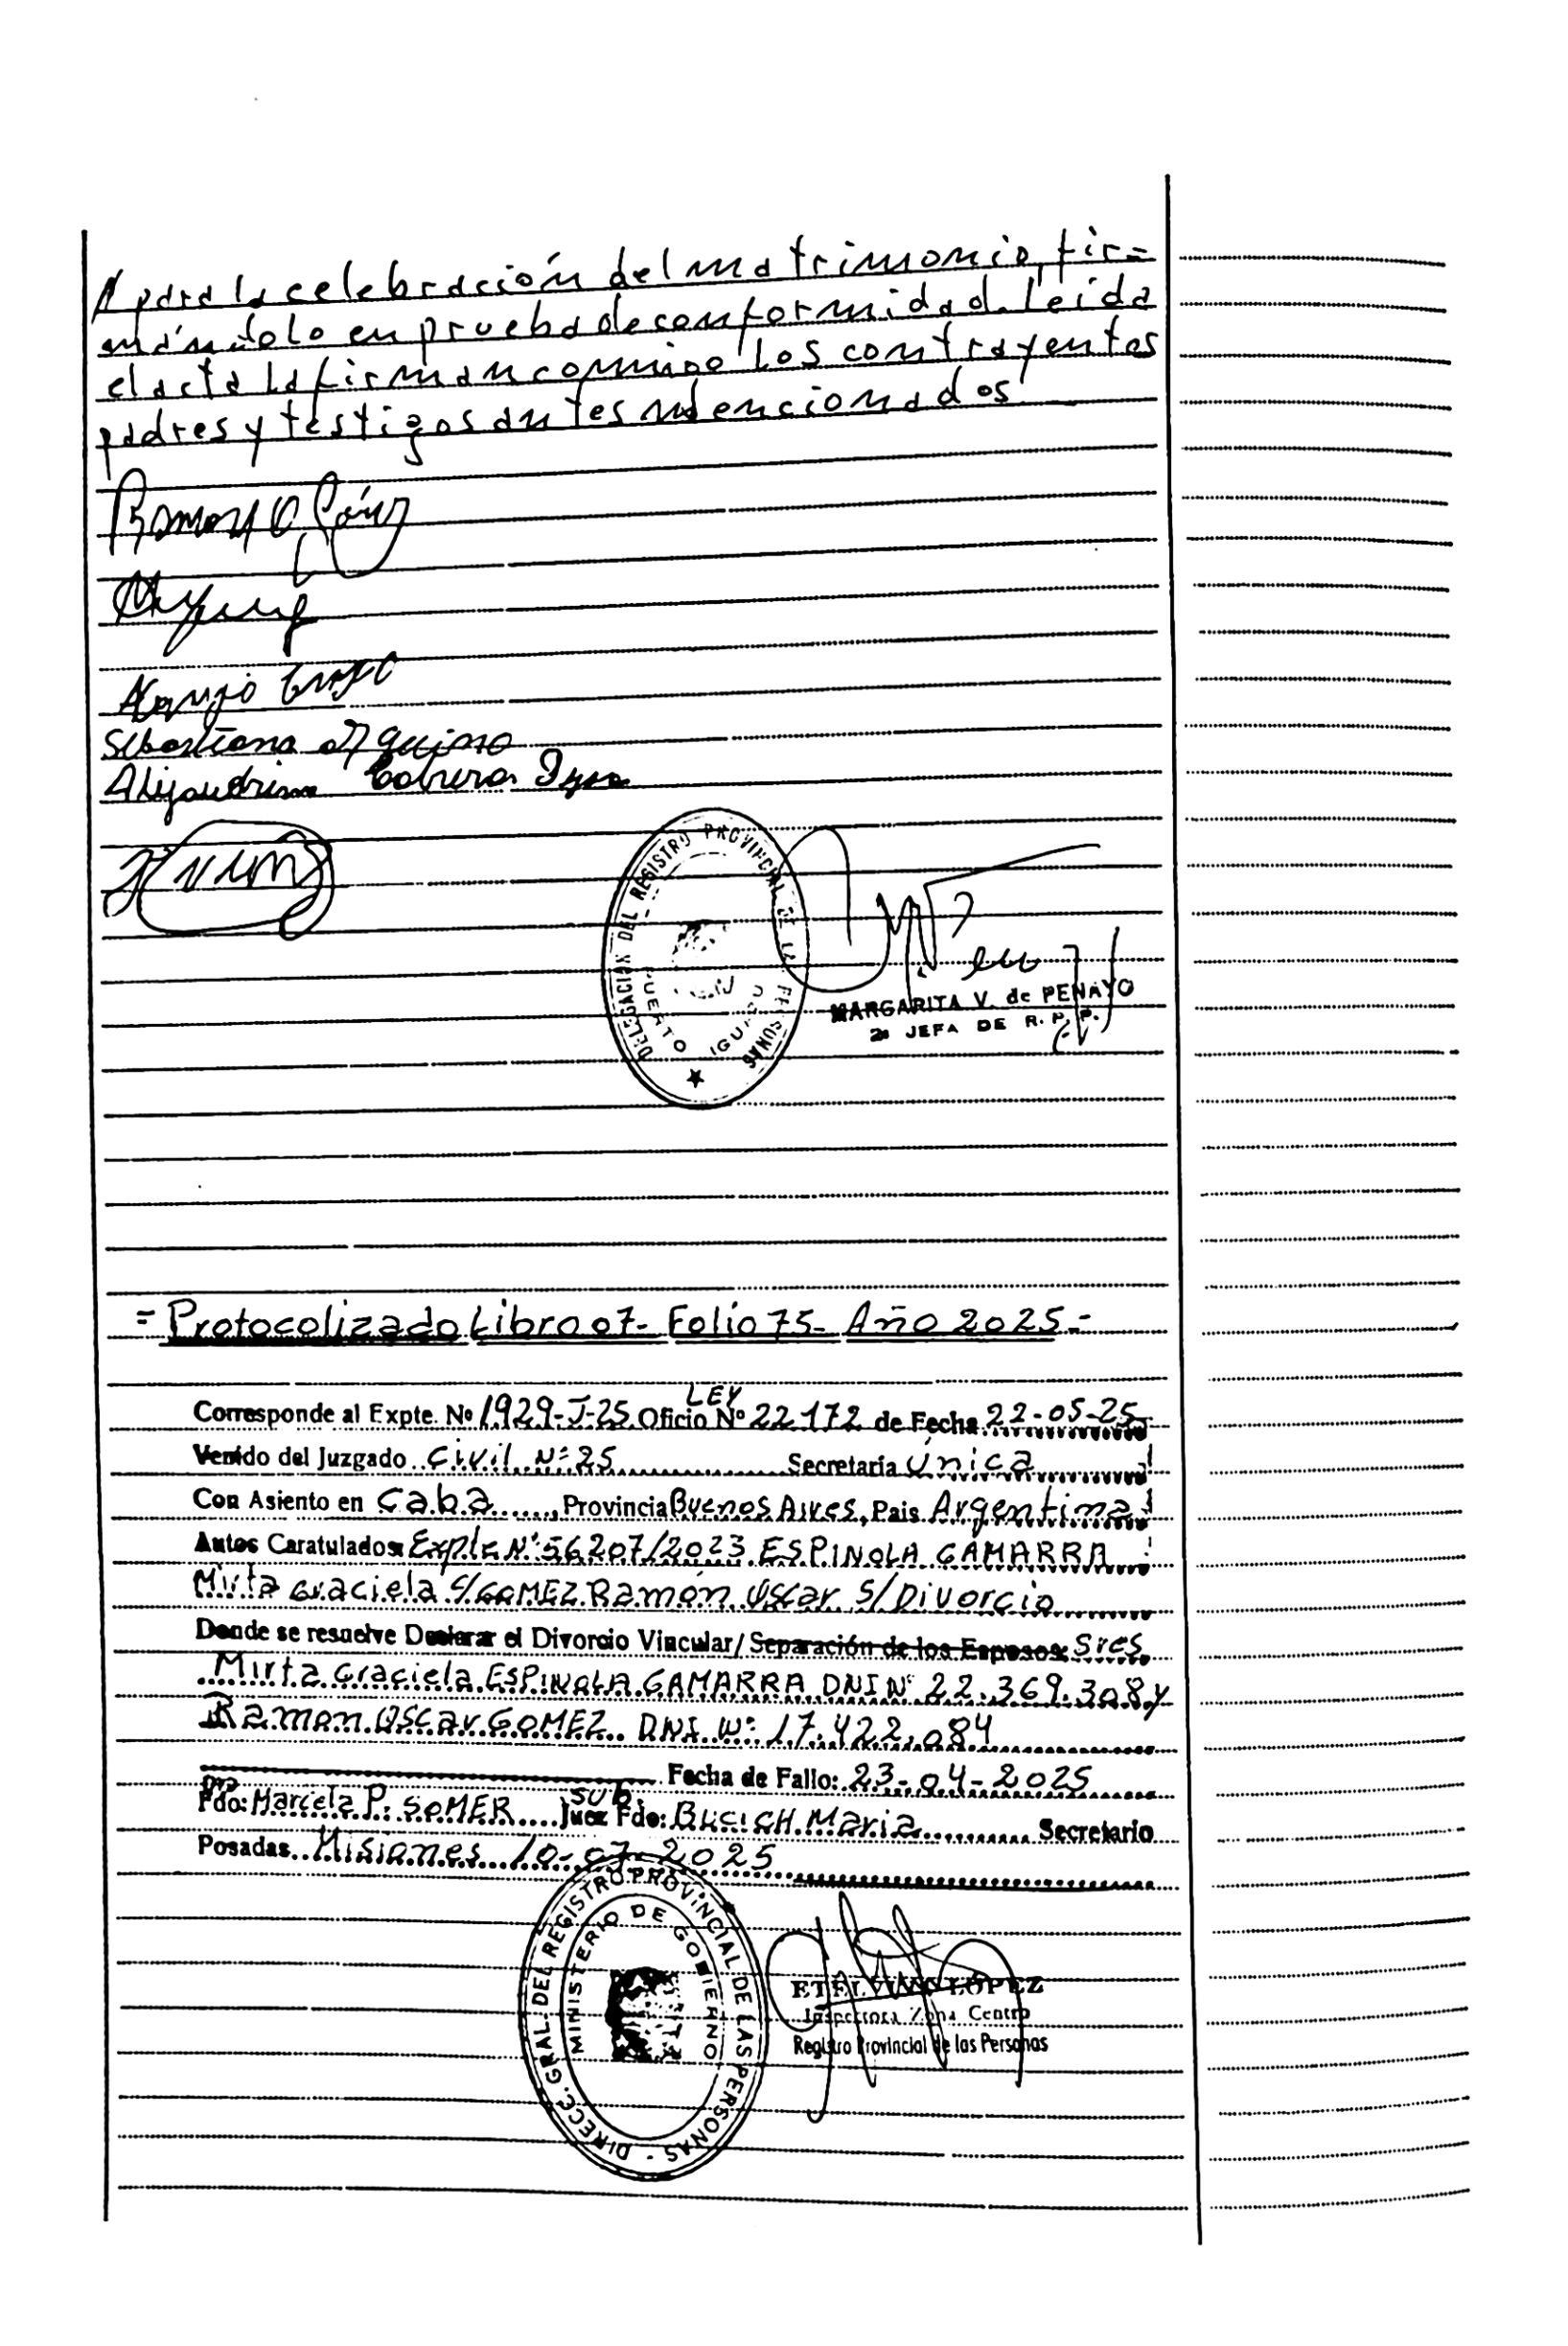 para la celebración del matrimonio, fir=
mándolo en prueba de conformidad. Leída
el acta la firman conmigo los contrayentes
padres y testigos antes mencionados.
Sebastiana Aquino
Alijandrina Cabrera
DELEGACION DEL REGISTRO PROVINCIAL DE LAS PERSONAS
PUERTO IGUAZU
MARGARITA V. de PENAYO
2a JEFA DE R. P. P.
= Protocolizado Libro 07- Folio 75- Año 2025 =
LEY
Corresponde al Expte. Nº 1929-J-25 Oficio Nº 22172 de Fecha 22-05-25
Venido del Juzgado Civil Nº 25 Secretaria Única
Con Asiento en Caba, Provincia Buenos Aires, Pais Argentina
Autos Caratulados: Expte Nº 56207/2023 ESPINOLA GAMARRA
Mirta Graciela C/GOMEZ Ramón Oscar S/Divorcio
Donde se resuelve Declarar el Divorcio Vincular/ Separación de los Esposos: Sres
Mirta Graciela ESPINOLA GAMARRA DNI Nº 22.369.308 y
Ramon Oscar GOMEZ DNI Nº 17.422.084
Fecha de Fallo: 23-04-2025
Fdo: Marcela P. SOMER Juez Fdo: sub. BUCICH Maria Secretario
Posadas Misiones 10-07-2025
DIRECC. GRAL. DEL REGISTRO PROVINCIAL DE LAS PERSONAS -
MINISTERIO DE GOBIERNO
ETELVINO LÓPEZ
Inspectora Zona Centro
Registro Provincial de las Personas